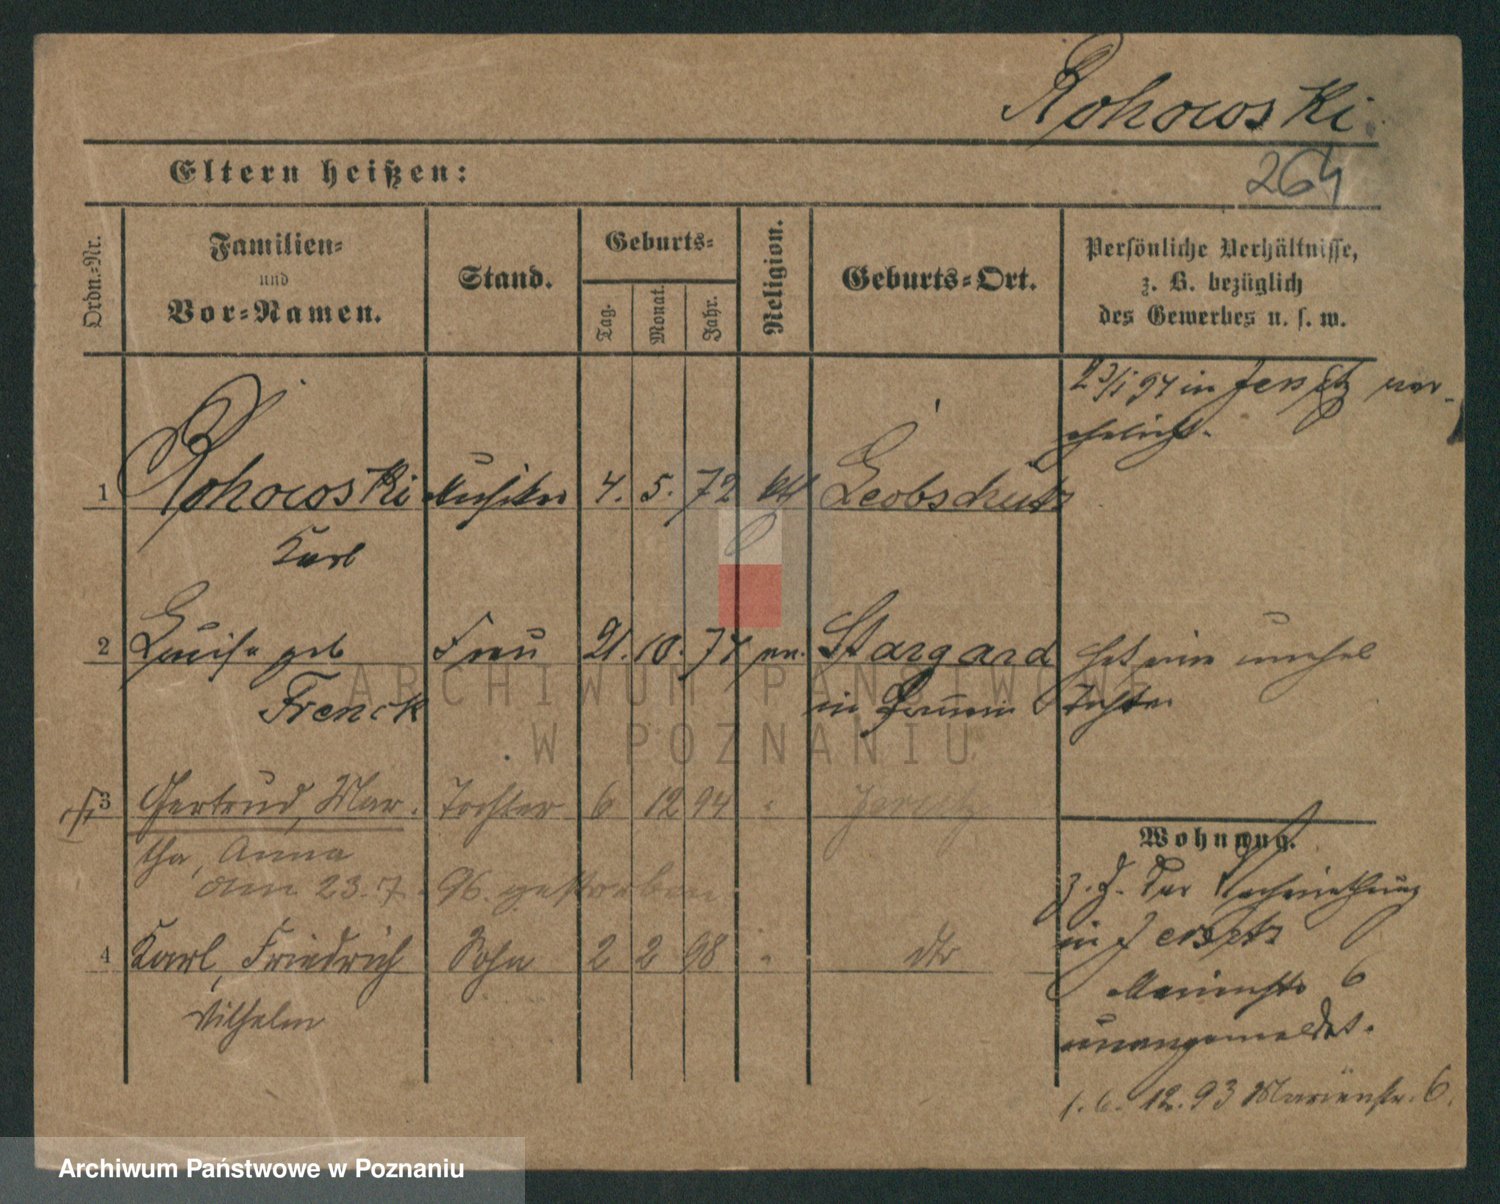 Rohowski
264
Eltern heißen:
Ordn.=Nr.
Familien=
und
Vor=Namen.
Stand.
Geburts=
Tag.
Monat.
Jahr.
Religion.
Geburts=Ort.
Persönliche Verhältnisse,
z. B. bezüglich
des Gewerbes u. s. w.
23/1 94 in Jersitz ver-
ehelicht.
1 Rohowski Musiker 4. 5. 72 kth Leobschütz
Karl
2 Luise geb Frau 21. 10. 74 ev. Stargard hat eine unehel
Frenck in Pomm Tochter
3 Gertrud, Mar- Tochter 6 12 94 " Jersitz
tha, Anna
am 23.7. 96. gestorben
4 Karl, Friedrich Sohn 2 2 98 " dto
Wilhelm
Wohnung.
z. Z. der
in Jersitz
Marienstr 6
unangemeldet.
1. 6. 12. 93 Marienstr. 6.
ARCHIWUM PAŃSTWOWE
W POZNANIU
Archiwum Państwowe w Poznaniu